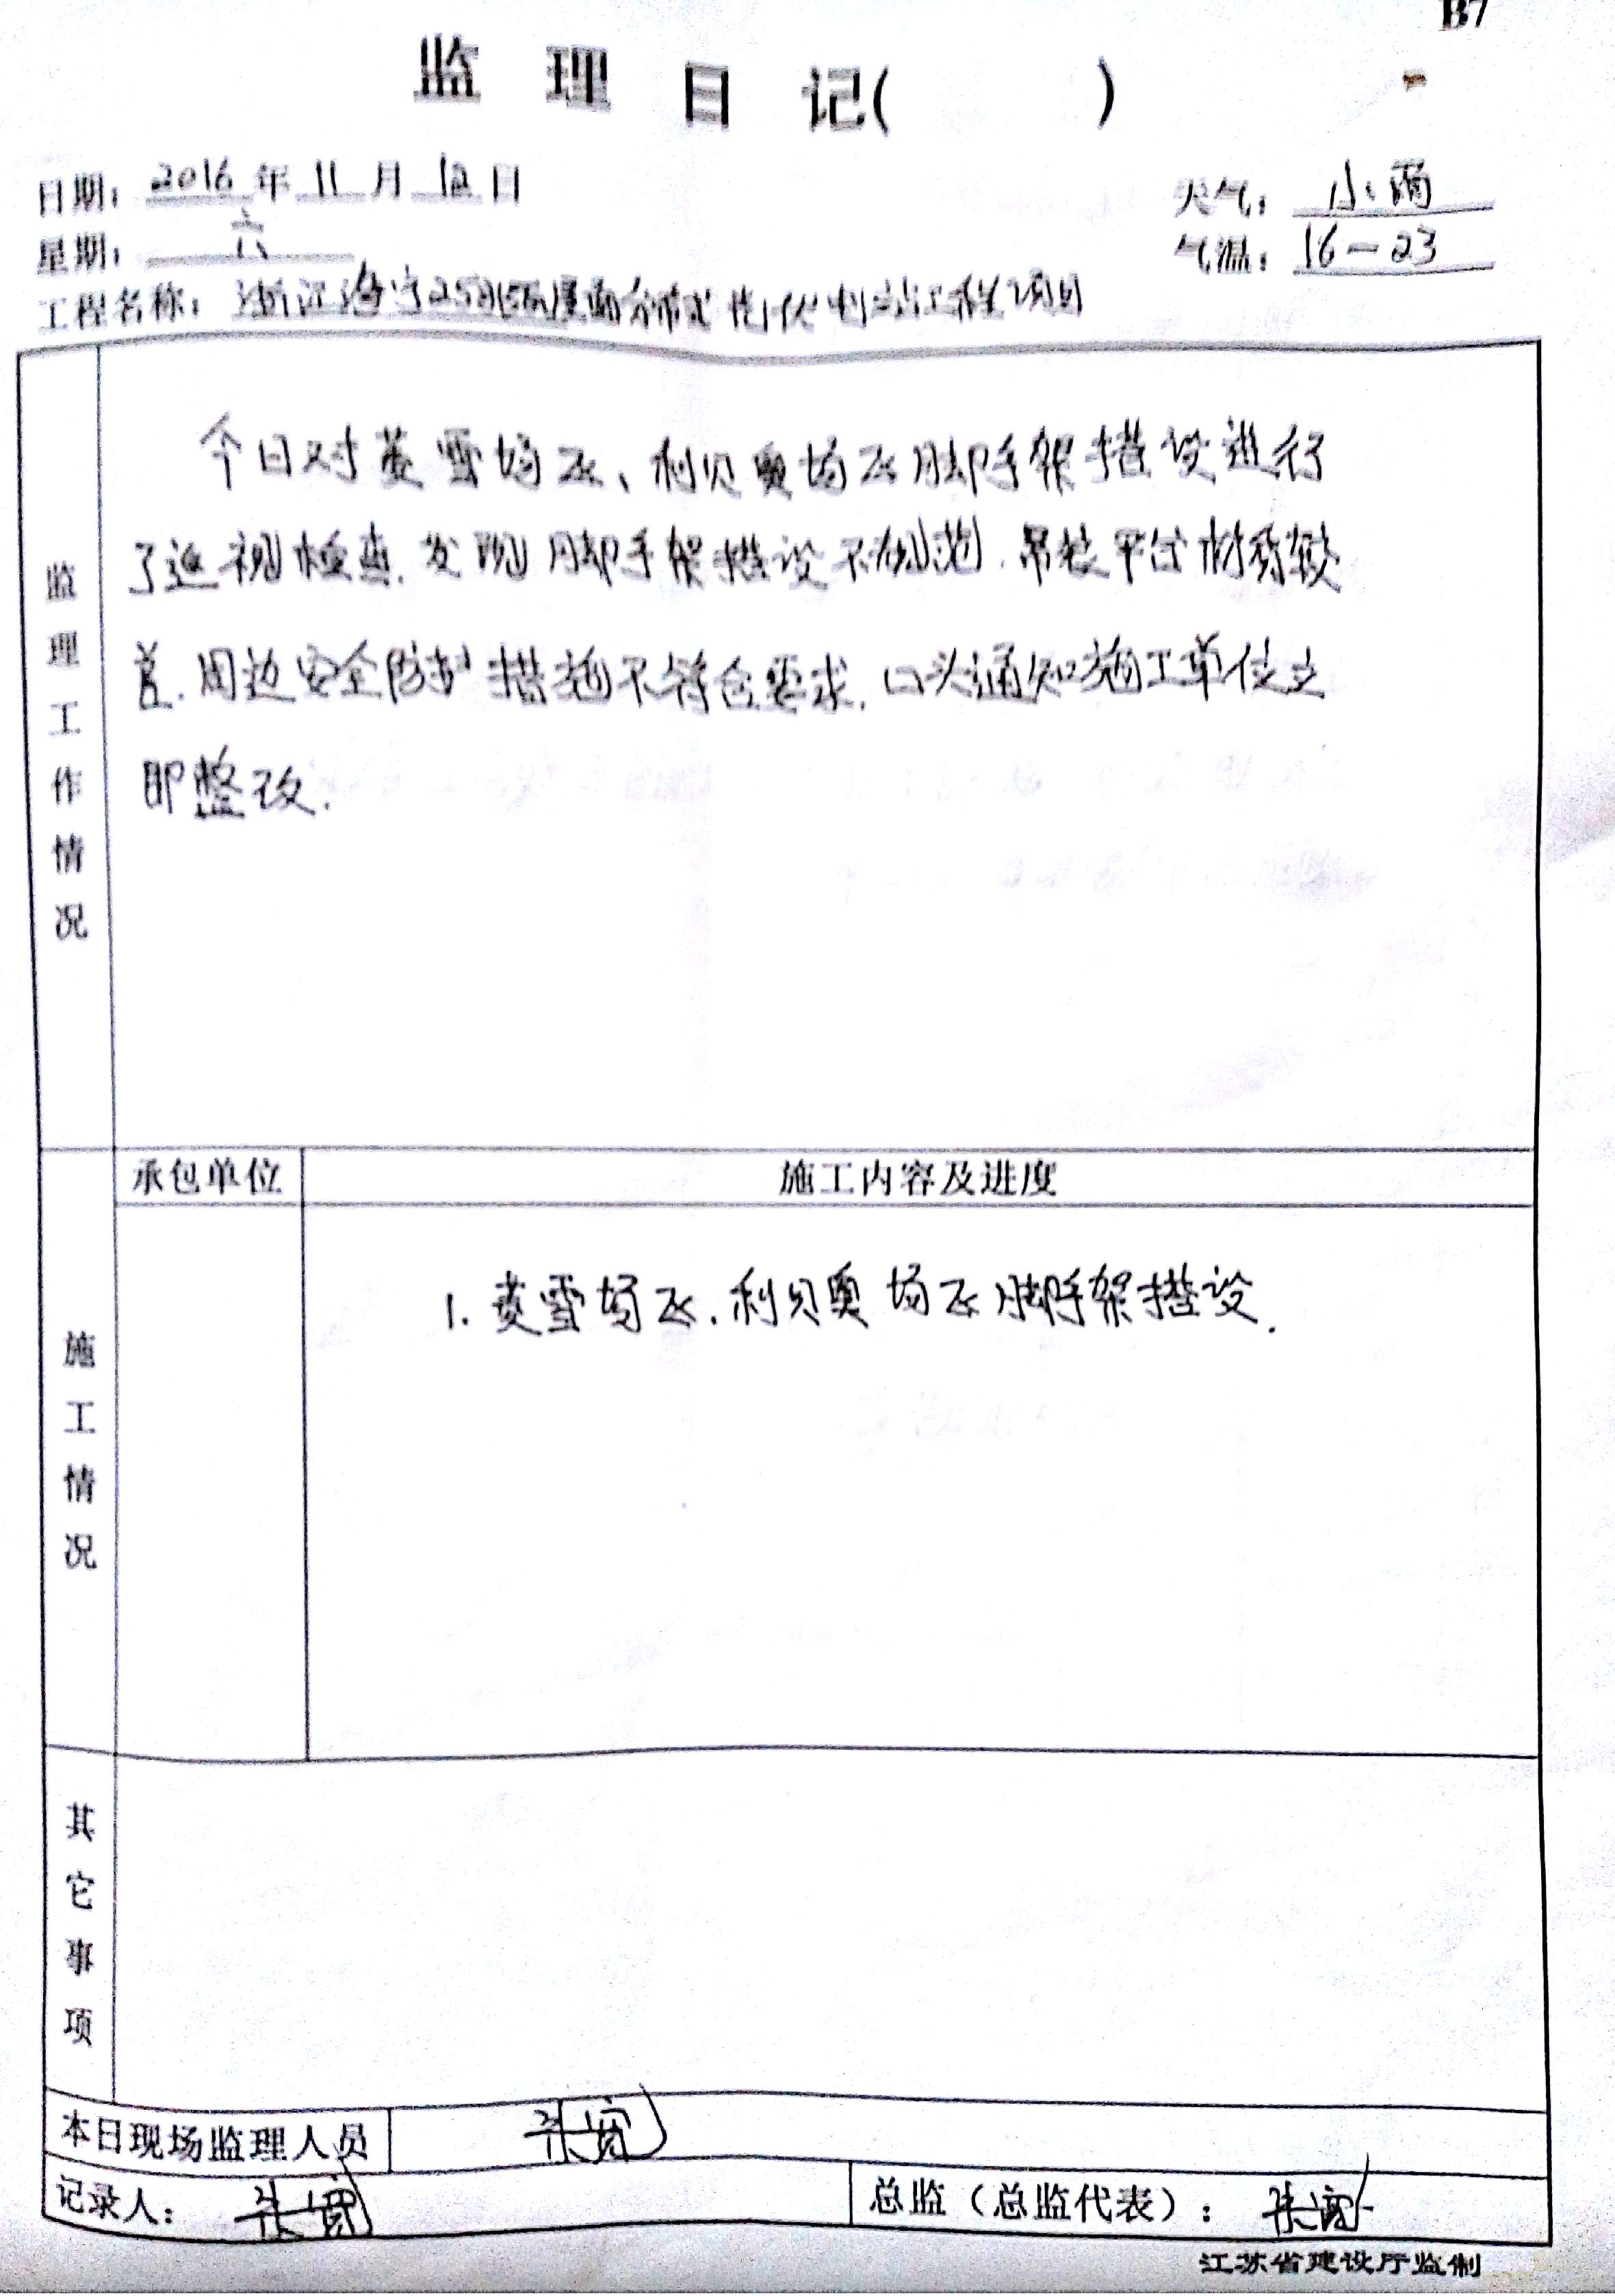 B7
监 理 日 记( )
日期： 2016 年 11 月 12 日
天气： 小雨
星期： 六
气温： 16-23
工程名称： 浙江海宁25MW屋面分布式光伏电站工程项目
监理工作情况
今日对菱雪场区、利贝奥场区脚手架搭设进行
了巡视检查.发现脚手架搭设不规范.吊装平台材料较
.周边安全防护措施不符合要求.口头通知施工单位立
即整改.
承包单位 施工内容及进度
施工情况
1.菱雪场区.利贝奥场区脚手架搭设.
其它事项
本日现场监理人员 张
记录人： 张
总监（总监代表）： 张
江苏省建设厅监制